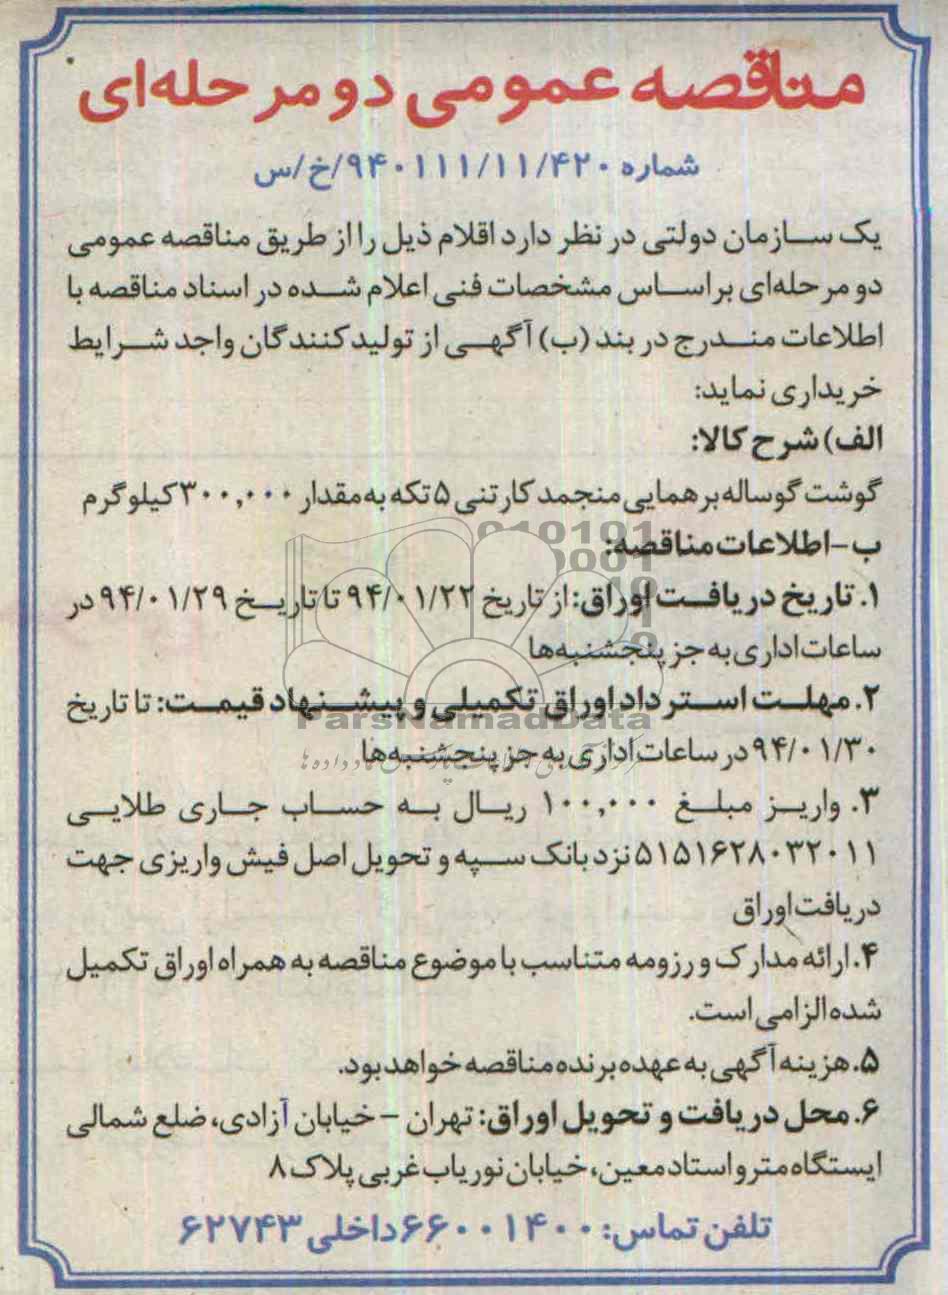 مناقصه عمومی دو مرحله‌ای
شماره ۹۴۰۱۱۱/۱۱/۴۲۰/خ/س
یک سازمان دولتی در نظر دارد اقلام ذیل را از طریق مناقصه عمومی
دو مرحله‌ای براساس مشخصات فنی اعلام شده در اسناد مناقصه با
اطلاعات مندرج در بند (ب) آگهی از تولیدکنندگان واجد شرایط
خریداری نماید:
الف) شرح کالا:
گوشت گوساله برهمایی منجمد کارتنی ۵ تکه به مقدار ۳۰۰,۰۰۰ کیلوگرم
ب-اطلاعات مناقصه:
۱. تاریخ دریافت اوراق: از تاریخ ۹۴/۰۱/۲۲ تا تاریخ ۹۴/۰۱/۲۹ در
ساعات اداری به جز پنجشنبه‌ها
۲. مهلت استرداد اوراق تکمیلی و پیشنهاد قیمت: تا تاریخ
۹۴/۰۱/۳۰ در ساعات اداری به جز پنجشنبه‌ها
ParsNamadData
۳. واریز مبلغ ۱۰۰,۰۰۰ ریال به حساب جاری طلایی
۵۱۵۱۶۲۸۰۳۲۰۱۱ نزد بانک سپه و تحویل اصل فیش واریزی جهت
دریافت اوراق
۴. ارائه مدارک و رزومه متناسب با موضوع مناقصه به همراه اوراق تکمیل
شده الزامی است.
۵. هزینه آگهی به عهده برنده مناقصه خواهد بود.
۶. محل دریافت و تحویل اوراق: تهران - خیابان آزادی، ضلع شمالی
ایستگاه مترو استاد معین، خیابان نوریاب غربی پلاک ۸
تلفن تماس: ۶۶۰۰۱۴۰۰ داخلی ۶۲۷۴۳